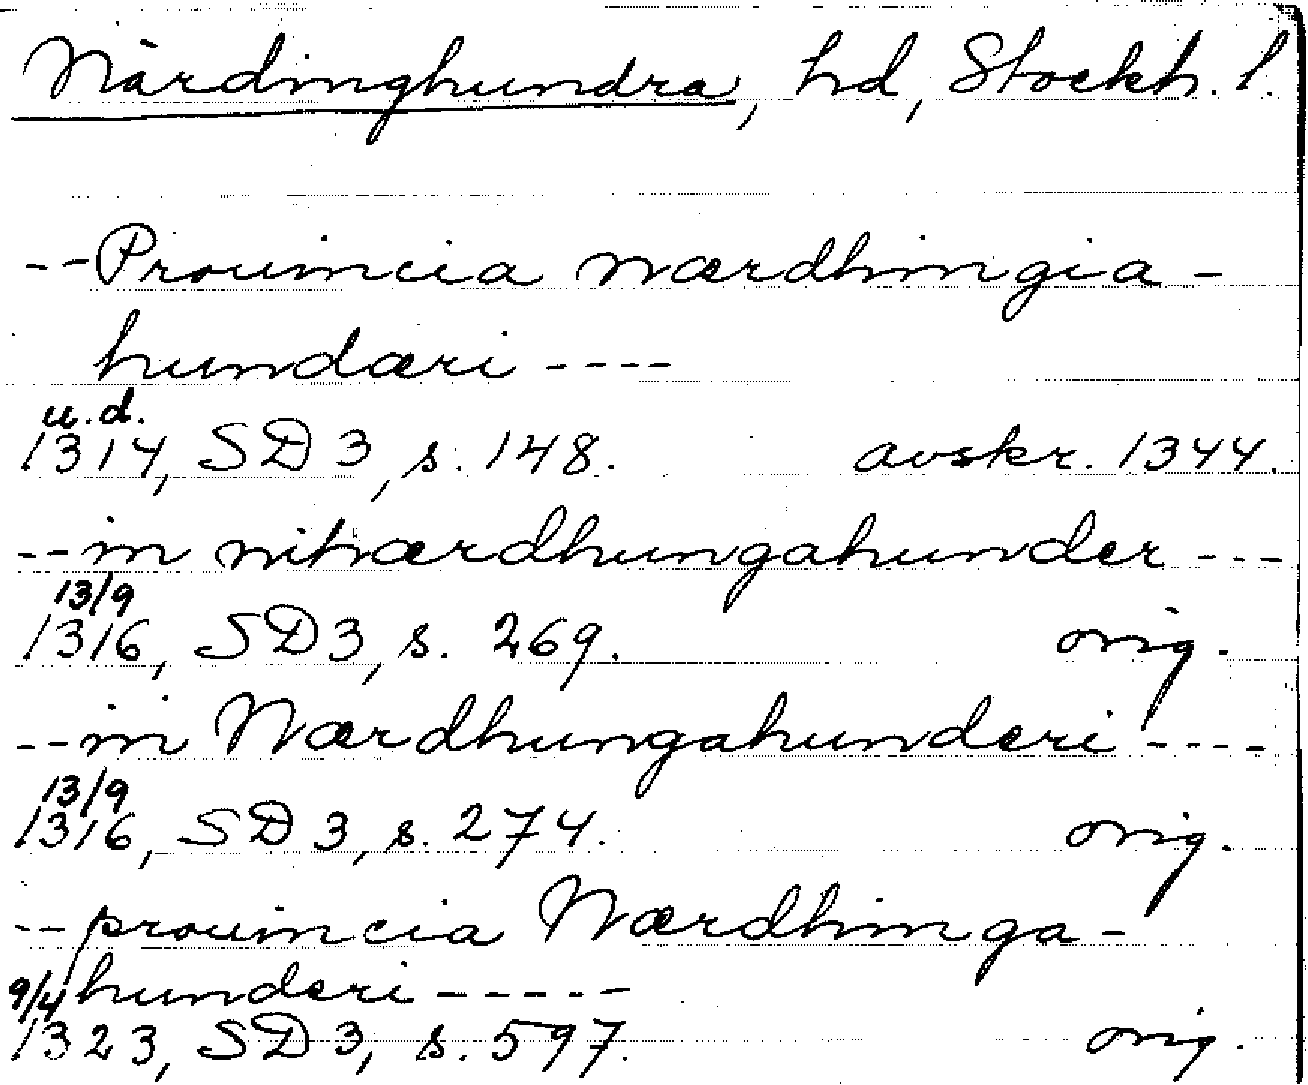 Närdinghundra, hd, Stockh. l.
--Prouincia nærdhingia-
hundæri ----
u.d.
1314, SD 3, s. 148. avskr. 1344.
--in nitnærdhungahunder ---
13/9
1316, SD 3, s. 269. orig.
--in Nærdhungahunderi ----
13/9
1316, SD 3, s. 274. orig.
--prouincia Nærdhinga-
hunderi -----
9/4
1323, SD 3, s. 597. orig.